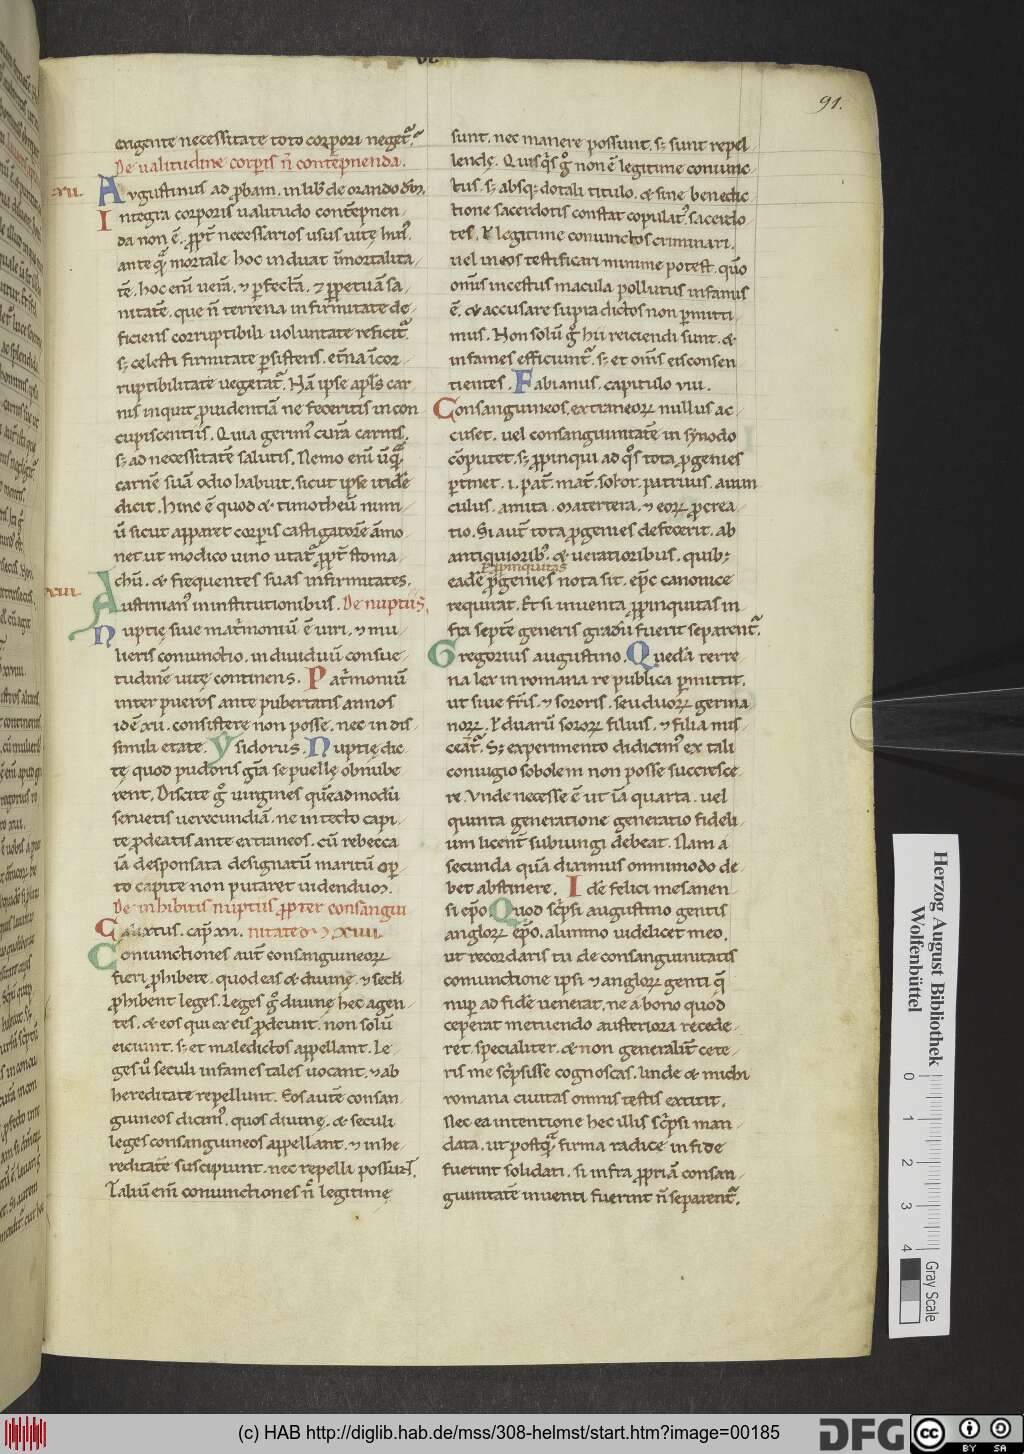 91.
exigente necessitate toto corpori negetᷓ.
De ualitudine corpīs n̄ contēpnenda.
xii.
Augustinus ad ꝓbam. in lib̄ de orando dm̄.
Integra corporis ualitudo contēpnen-
da non ē. ꝓpt̄ necessarios usus uitę huiꝰ.
ante quā mortale hoc induat īmortalita-
tē. hoc enī uerā. ⁊ ꝑfectā. ⁊ ꝑpetuā sa-
nitatē. que n̄ terrena infirmitate de-
ficiens corruptibili uoluntate reficitᷓ.
sꝫ celesti firmitate ꝑsistens. et̄na īcor-
ruptibilitate uegetatᷓ. Nā ipse apl̄s car
nis inquit ꝓuidentiā ne feceritis in con
cupiscentiis. Quia geritmꝰ curā carnis.
sꝫ ad necessitatē salutis. Nemo enī ūquā
carnē suā odio habuit. sicut ipse itidē
dicit. Hinc ē quod & timotheū nimi-
ū sicut apparet corpīs castigatorē āmo
net ut modico uino utatᷓ ꝓpt̄ stoma-
chū. & frequentes suas infirmitates.
xiii.
Iustinianꝰ in institutionibus. De nuptiis.
Nuptię siue matr̄moniū ē uiri. ⁊ mu-
lieris coniunctio. indiuiduū consue-
tudinē uitę continens. Patr̄moniū
inter pueros ante pubertatis annos
idē xii. consistere non posse. nec in dis-
simili etate. Ysidorus. Nuptię dic-
tę quod pudoris gr̄a se puellę obnube
rent. Discite gͦ uirgines quēadmodū
seruetis uerecundiā. ne intecto capi-
te ꝓdeatis ante extraneos. cū rebecca
iā desponsata designatū maritū oꝑ
to capite non putaret uidendum.
De inhibitis nuptiis ꝓpter consangui
Calixtus. cap̄. xvi. nitatē xiiii.
Coniunctiones aut̄ consanguineoꝝ
fieri ꝓhibete. quod eas & diuinę ⁊ sc̄li
ꝓhibent leges. Leges gͦ diuinę hec agen-
tes. & eos qui ex eis ꝓdeunt. non solū
eiciunt. sꝫ et maledictos appellant. Le-
ges ū seculi infames tales uocant. ⁊ ab
hereditate repellunt. Eos autē consan-
guineos dicimꝰ. quos diuinę. & seculi
leges consanguineos appellant. ⁊ in he-
reditatē suscipiunt. nec repelli possun̄t.
Taliū enī coniunctiones n̄ legitimę
sunt. nec manere possunt. sꝫ sunt repel
lendę. Quisqͥs gͦ non ē legitime coniunc-
tus. sꝫ absqꝫ dotali titulo. & sine benedic
tione sacerdotis constat copulatꝰ. sacerdo-
tes. ł legitime coniunctos criminari.
uel in eos testificari minime potest. qm̄o
om̄is incestus macula pollutus infamis
ē. & accusare supra dictos non ꝑmitti-
mus. Non solū gͦ hii reiciendi sunt. &
infames efficiuntᷓ. sꝫ et om̄s eis consen
tientes. Fabianus. capitulo viii.
Consanguineos. extraneoꝝ nullus ac-
cuset. uel consanguinitatē in synodo
cōputet. sꝫ ꝓpinqui ad qͦs tota ꝓgenies
ꝑtinet. i. pat̄. mat̄. soror. patruus. auun
culus. amita. Matertera. ⁊ eoꝝ ꝓcrea-
tio. Si aut̄ tota ꝓgenies defecerit. ab
antiquioribꝰ. & ueratioribus. quibꝫ
ꝓpinquitas
eadē ꝓgenies nota sit. ep̄c canonice
requirat. Et si inuenta ꝓpinquitas in-
fra septē generis gradū fuerit separentᷓ.
Gregorius augustino. Quedā terre
na lex in romana re publica ꝑmittit.
ut siue fr̄is. ⁊ sororis. seu duoꝝ germa
noꝝ. ł duarū soroꝝ filius. ⁊ filia mis-
ceātᷓ. Sꝫ experimento didicimꝰ ex tali
coniugio sobolem non posse succresce
re. Vnde necesse ē ut iā quarta. uel
quinta generatione generatio fideli-
um licent̄ subiungi debeat. Nam a
secunda quā diximus omnimodo de
bet abstinere. Idē felici mesanen-
si ep̄o. Quod scͥpsi augustino gentis
angloꝝ ep̄o. alumno uidelicet meo.
ut recordaris tu de consanguinitatis
coniunctione ipsi ⁊ angloꝝ genti quę
nuꝑ ad fidē uenerat. ne a bono quod
ceperat metuendo austeriora recede-
ret. specialiter. & non generalit̄ cete-
ris me scͥpsisse cognoscas. Unde & michi
romana ciuitas omnis testis extitit.
Nec ea intentione hec illis scͥpsi man-
data. ut postquā firma radice in fide
fuerint solidati. si infra ꝓpriā consan-
guinitatē inuenti fuerint n̄ separentᷓ.
Herzog August Bibliothek
Wolfenbüttel
0 1 2 3 4
Gray Scale
(c) HAB http://diglib.hab.de/mss/308-helmst/start.htm?image=00185
DFG
cc BY SA